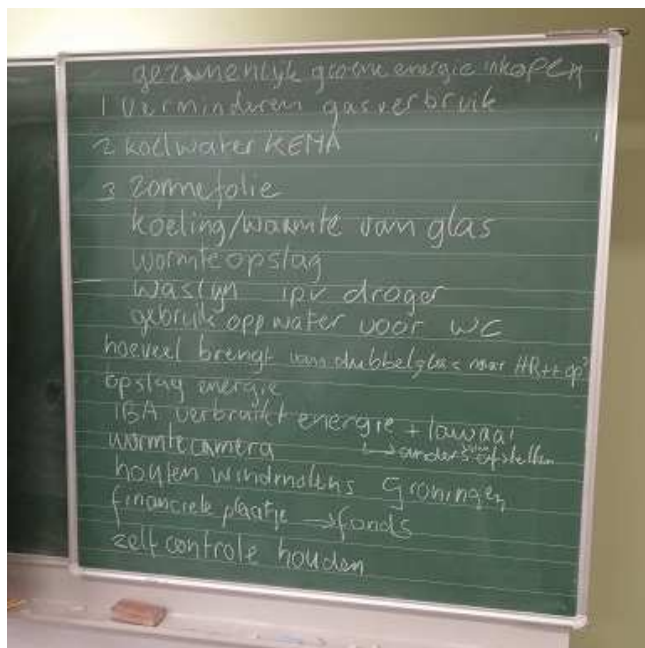 gezamenlijk groene energie inkopen
1 Verminderen gasverbruik
2 koelwater KEMA
3 zonnefolie
koeling/warmte van glas
warmteopslag
waslijn ipv droger
gebruik opp water voor WC
hoeveel brengt van dubbelglas naar HR++ op?
opslag energie
IBA verbruikt energie + lawaai
warmtecamera ↳ anders afstellen
houten windmolens Groningen
financiele plaatje → fonds
zelf controle houden